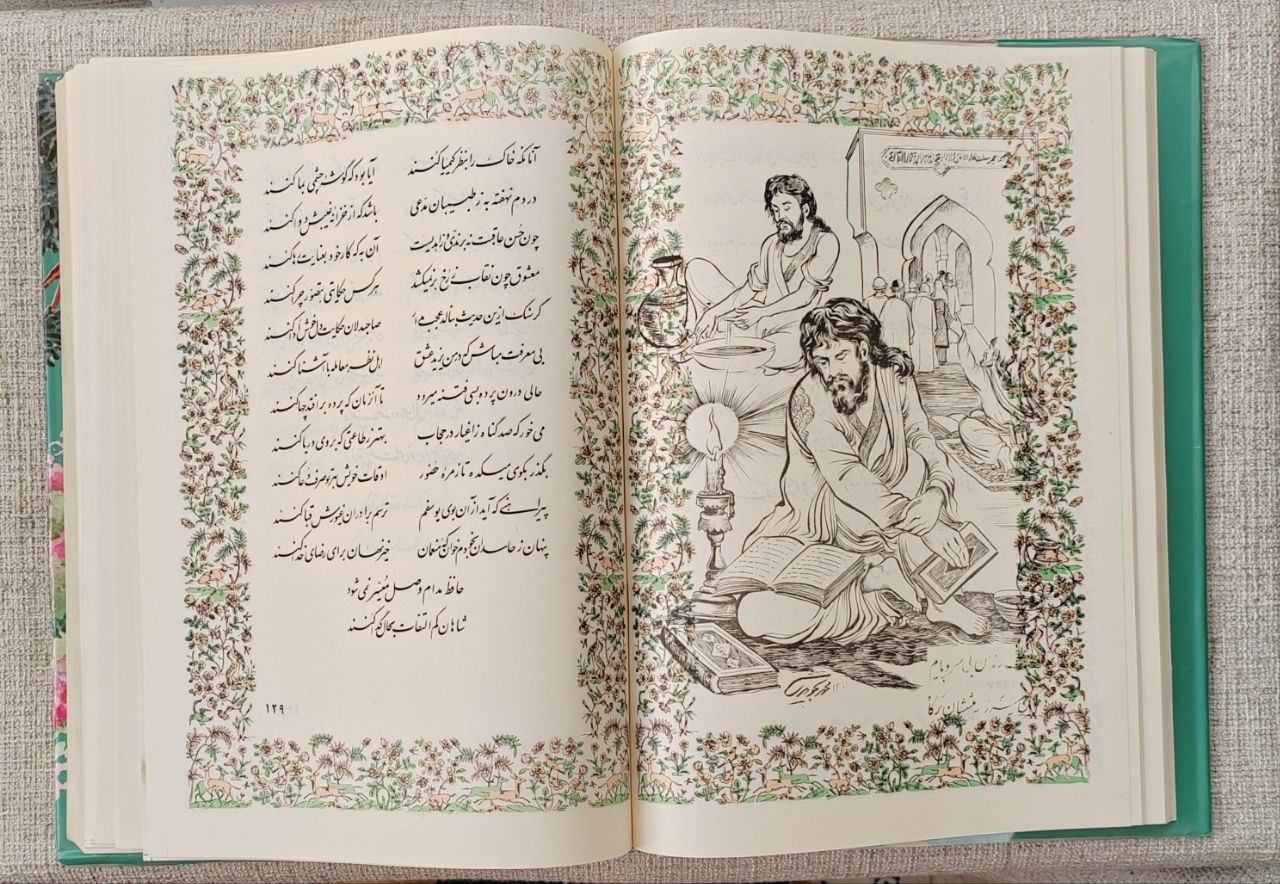 آنانکه خاک را بنظر کیمیا کنند آیا بود که گوشه چشمی بما کنند
دردم نهفته به ز طبیبان مدعی باشد که از خزانه غیبش دوا کنند
چون حسن عاقبت نه برندی و زاهدیست آن به که کار خود بعنایت رها کنند
معشوق چون نقاب ز رخ بر نمیکشد هر کس حکایتی بتصور چرا کنند
گر سنگ ازین حدیث بنالد عجب مدار صاحبدلان حکایت دل خوش ادا کنند
بی معرفت مباش که در من یزید عشق اهل نظر معامله با آشنا کنند
حالی درون پرده بسی فتنه میرود تا آنزمان که پرده بر افتد چها کنند
می خور که صد گناه ز اغیار در حجاب بهتر ز طاعتی که بروی و ریا کنند
بگذر بکوی میکده تا زمره حضور اوقات خویش بهر تو صرف دعا کنند
پیراهنی که آید ازآن بوی یوسفم ترسم برادران غیورش قبا کنند
پنهان ز حاسدان بخودم خوان که منعمان خیر نهان برای رضای خدا کنند
حافظ مدام وصل میسر نمی شود
شاهان کم التفات بحال گدا کنند
۱۲۹
رندان بی سر و پایم